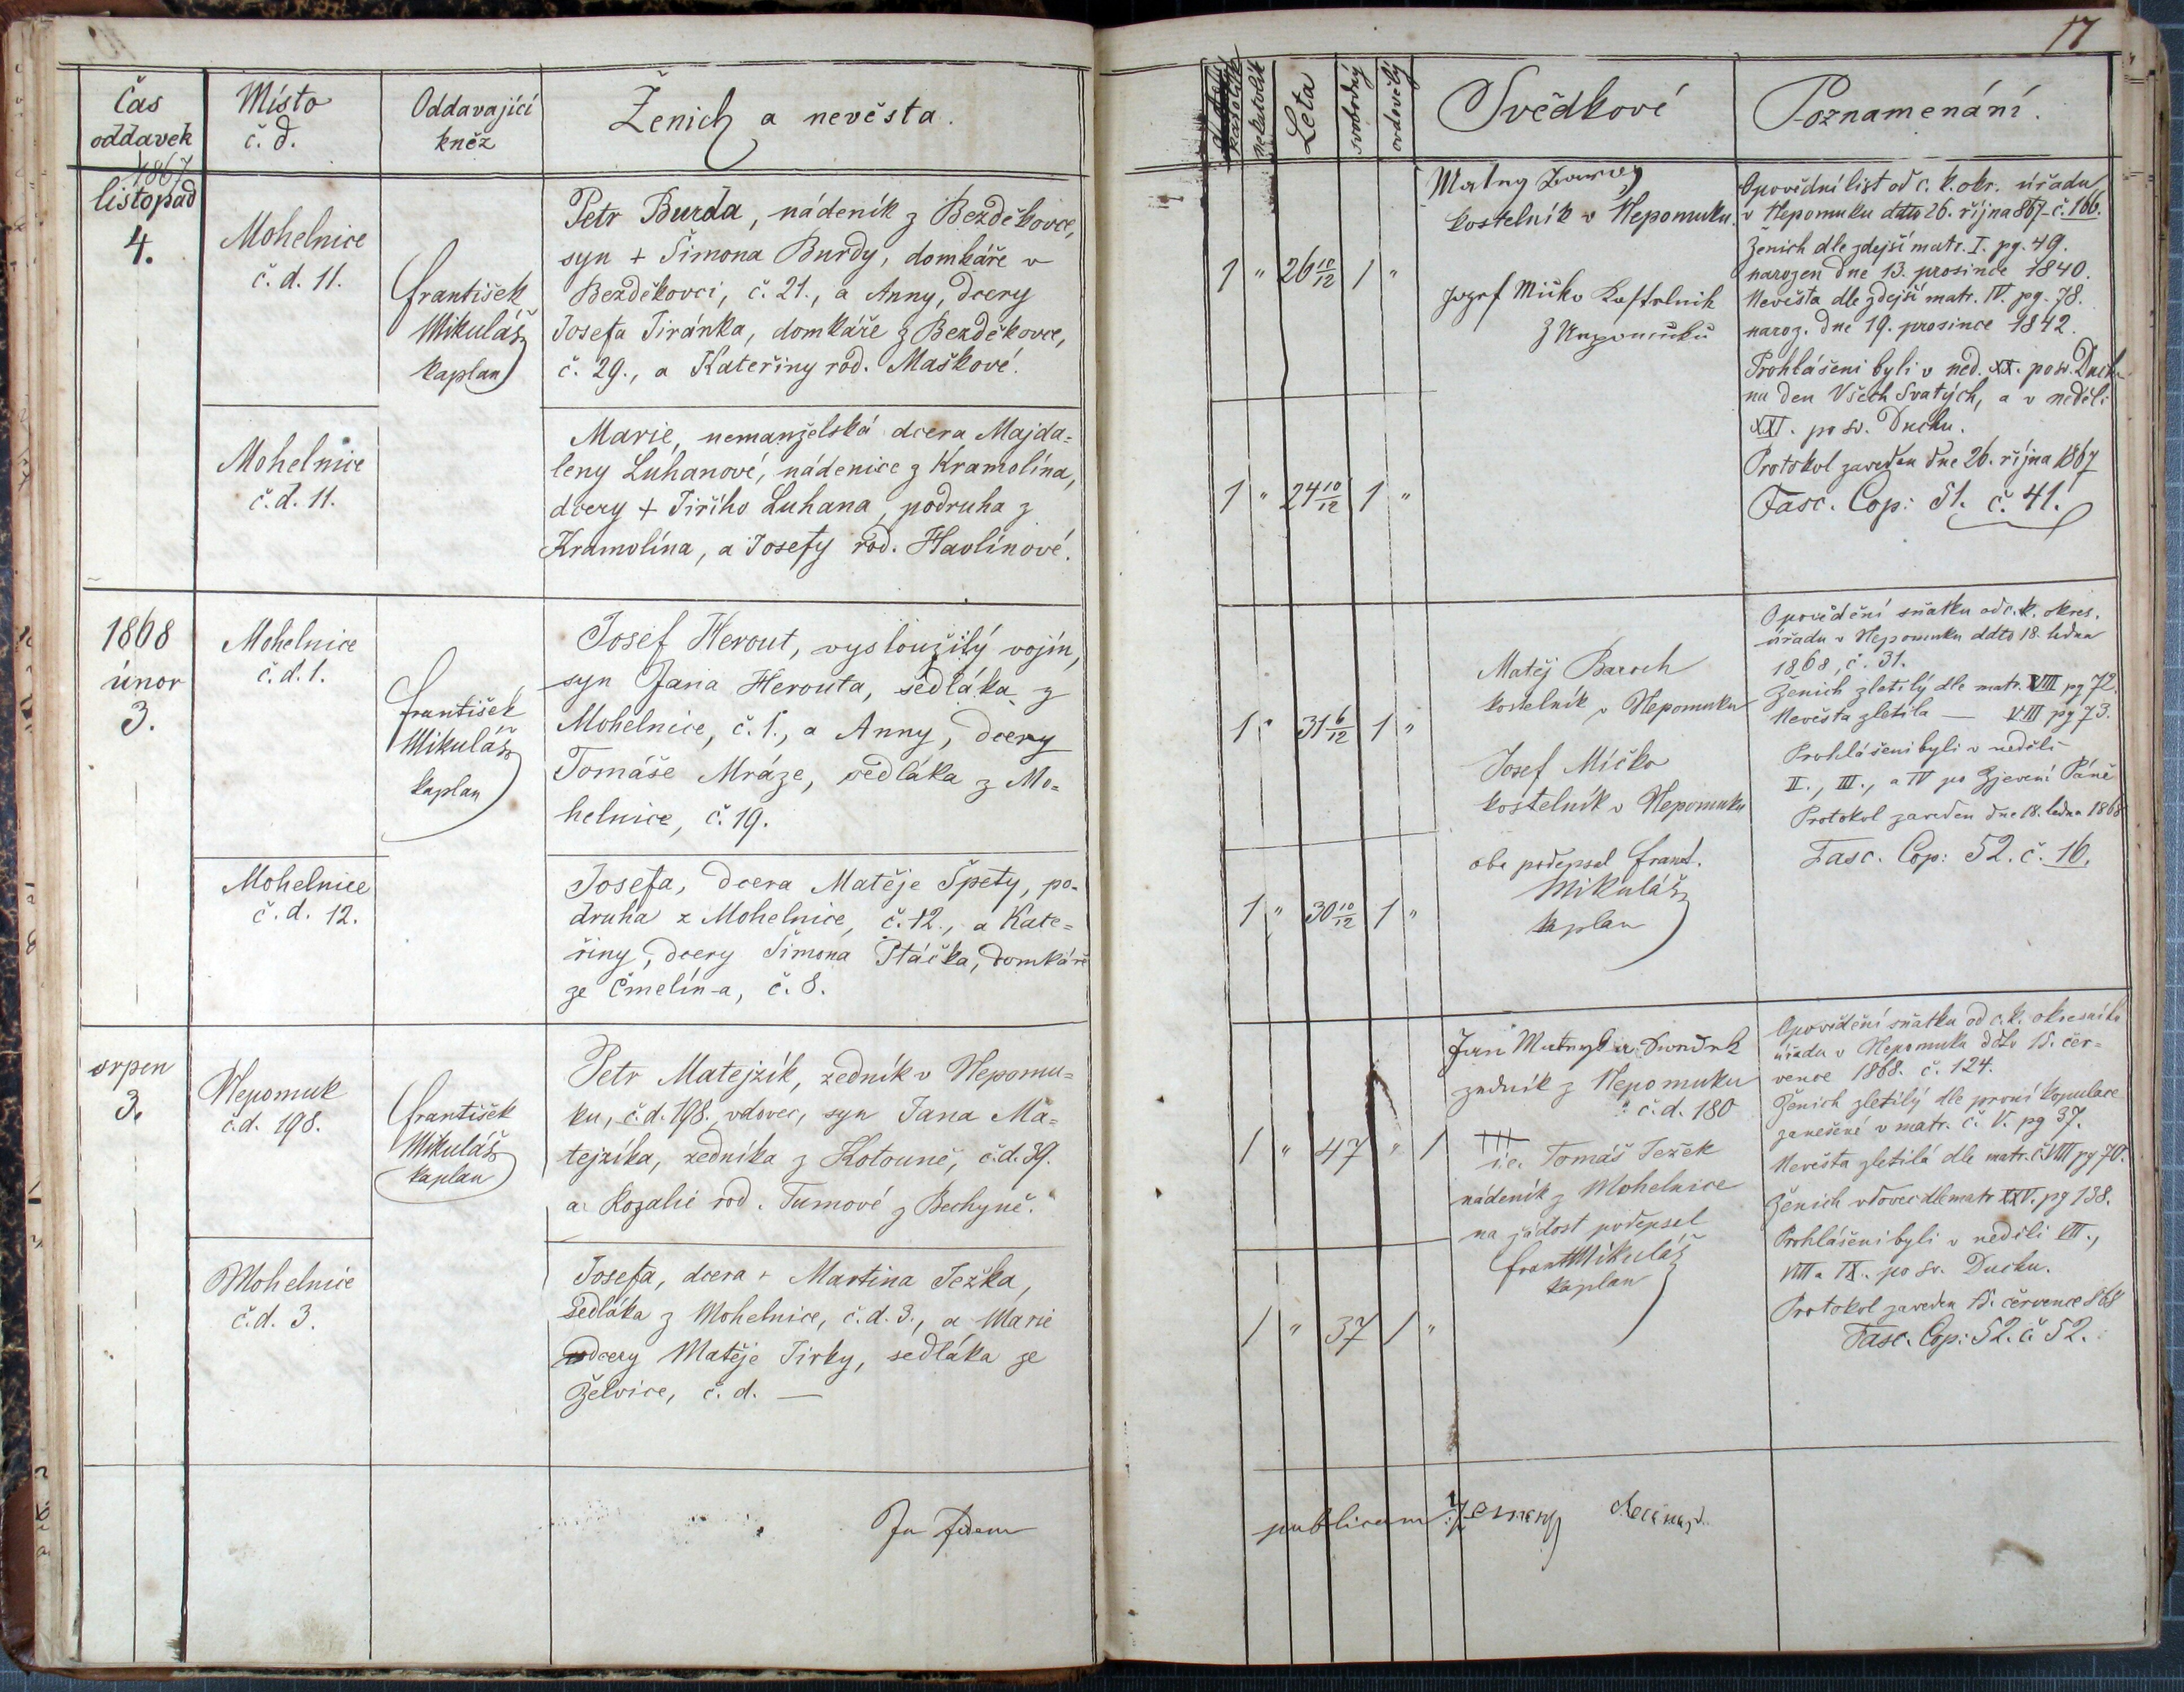 17
Čas
oddavek
Místo
č. d.
Oddavající
kněz
Ženich a nevěsta.
katolík
nekatolík
Leta
svobodný
ovdovělý
Svědkové
Poznamenání.
1867
listopad
4.
Mohelnice
č. d. 11.
František
Mikuláš
kaplan
Petr Burda, nádeník z Bezděkovce,
syn + Šimona Burdy, domkáře v
Bezděkovci, č. 21., a Anny, dcery
Josefa Jiránka, domkáře z Bezděkovce,
č. 29., a Kateřiny rod. Maškové.
1 " 26 10/12 1 "
kostelník v Nepomuku.
Josef Mičko
Opovědní list od c. k. okr. úřadu
v Nepomuku ddto 26. října 867 č. 166.
Ženich dle zdejší matr. I. pg. 49.
narozen dne 13. prosince 1840.
Nevěsta dle zdejší matr. IV. pg. 78.
naroz. dne 19. prosince 1842.
Prohlášeni byli v ned. XX. po sv. Duchu
na den Všech Svatých, a v neděli
XXI. po sv. Duchu.
Protokol zaveden dne 26. října 1867
Fasc. Cop: 51. č. 41.
Mohelnice
č. d. 11.
Marie, nemanželská dcera Majda=
leny Luhanové, nádenice z Kramolína,
dcery + Jiřího Luhana, podruha z
Kramolína, a Josefy rod. Havlínové.
1 " 24 10/12 1 "
1868
únor
3.
Mohelnice
č. d. 1.
František
Mikuláš
kaplan
Josef Herout, vysloužilý vojín,
syn Jana Herouta, sedláka z
Mohelnice, č. 1., a Anny, dcery
Tomáše Mráze, sedláka z Mo=
helnice, č. 19.
1 " 31 6/12 1 "
Matěj Baroch
kostelník v Nepomuku
Josef Míčko
kostelník v Nepomuku
oba podepsal Frant.
Mikuláš
kaplan
Opovědění sňatku od c. k. okres.
úřadu v Nepomuku ddto 18. ledna
1868, č. 31.
Ženich zletilý dle matr. VIII pg 72.
Nevěsta zletila — VIII pg 73.
Prohlášeni byli v neděli
II., III., a IV po Zjevení Páně
Protokol zaveden dne 18. ledna 1868
Fasc. Cop: 52. č. 16.
Mohelnice
č. d. 12.
Josefa, dcera Matěje Špety, po=
druha z Mohelnice, č. 12., a Kate=
řiny, dcery Šimona Ptáčka, domkáře
ze Čmelín-a, č. 8.
1 " 30 10/12 1 "
srpen
3.
Nepomuk
č. d. 198.
František
Mikuláš
kaplan
Petr Matejzík, zedník v Nepomu=
ku, č. d. 198., vdovec, syn Jana Ma=
tejzíka, zedníka z Kotouně, č. d. 39.
a Rozalie rod. Tumové z Bechyně.
1 " 47 " 1
zedník z Nepomuku
č. d. 180
+++
i.e. Tomáš Ježek
nádeník z Mohelnice
na žádost podepsal
Frant Mikuláš
kaplan
Opovědění sňatku od c. k. okresního
úřadu v Nepomuku ddto 15. čer=
vence 1868. č. 124.
Ženich zletilý dle první kopulace
zanešené v matr. č. V. pg 37.
Nevěsta zletilá dle matr. č. VIII pg 70.
Ženich vdovec dle matr XXV. pg 138.
Prohlášeni byli v neděli VII.,
VIII a IX. po sv. Duchu.
Protokol zaveden 15. července 868
Fasc. Cop: 52. č 52.
Mohelnice
č. d. 3.
Josefa, dcera + Martina Ježka,
sedláka z Mohelnice, č. d. 3., a Marie
dcery Matěje Jirky, sedláka ze
Želvice, č. d. —
1 " 37 1 "
In fidem
publicam